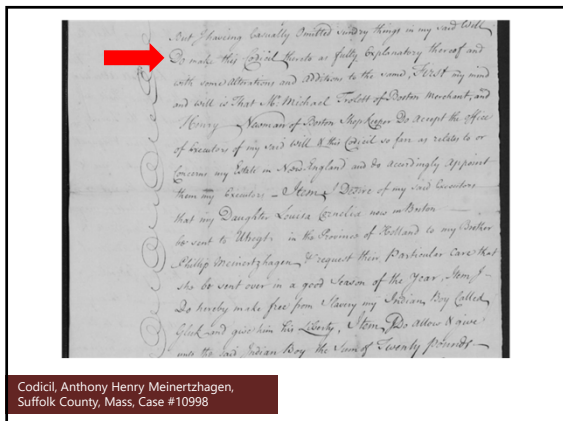 But I having Casually Omitted sundry things in my said Will
Do make this Codicil thereto as fully Explanatory thereof and
with some alterations and additions to the same, First my mind
and will is That Mr. Michael Trolett of Boston Merchant, and
Henry Newman of Boston Shop Keeper Do accept the office
of Executors of my said Will & this Codicil so farr as relates to or
Concerns my Estate in New England and do accordingly appoint
them my Executors - Item, I Desire of my said Executors
that my Daughter Louisa Cornelia now in Boston
be sent to in the Province of Holland to my Brother
Phillip Meinertzhagen & request their Particular Care that
she be sent over in a good Season of the Year, Item, I
Do hereby make free from Slavery my Indian Boy Called
and give him his Liberty, Item, I Do allow & give
unto the said Indian Boy the Sum of Twenty Pounds
Codicil, Anthony Henry Meinertzhagen,
Suffolk County, Mass, Case #10998